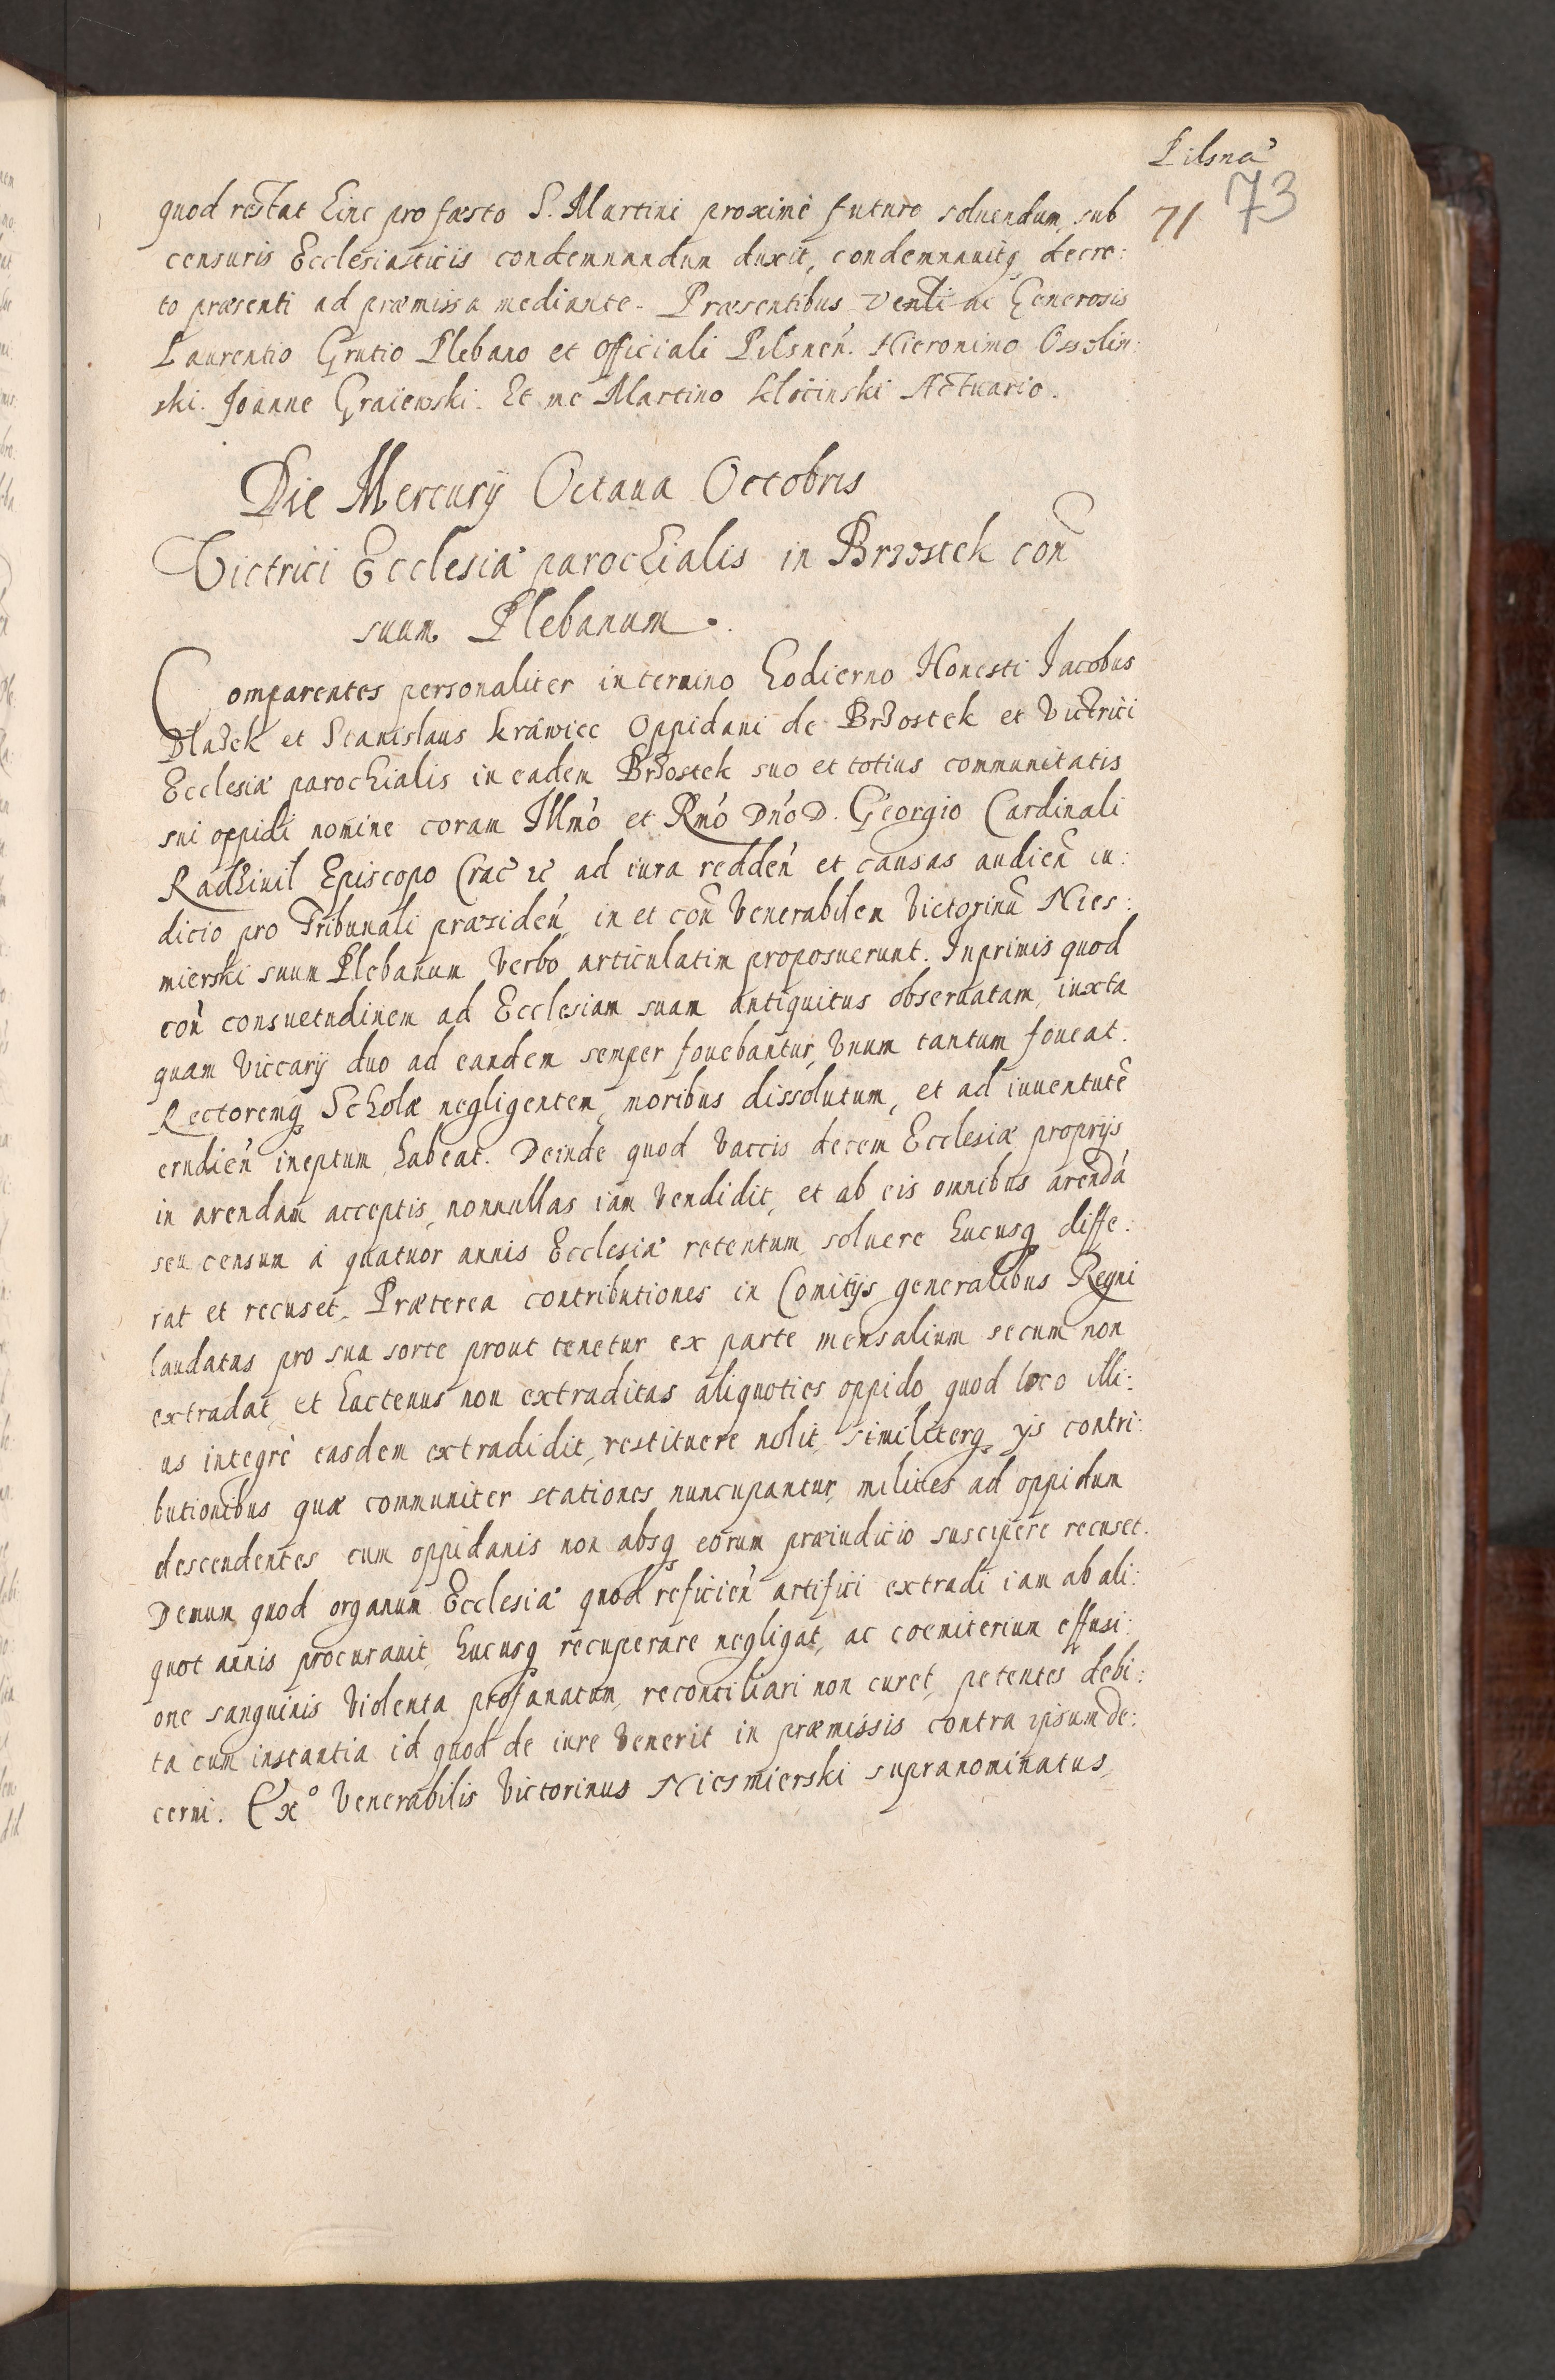 Pilsnae
73
71
quod restat hinc pro faesto S. Martini proximè futuro soluendum, sub
censuris Ecclesiasticis condemnandum duxit, condemnauitq decre:
to praesenti ad praemissa mediante. Praesentibus Venli ac Generosis
Laurentio Grutio Plebano et officiali Pilsneń. Hieronimo Ossolin:
ski. Joanne Graiewski. Et me Martino Klocinski Actuario.
Die Mercurij Octaua Octobris
Victrici Ecclesiae parochialis in Brzostek con̄
suum Plebanum.
Comparentes personaliter in termino hodierno Honesti Jacobus
Blazek et Stanislaus Krawiec Oppidani de Brzostek et Victrici
Ecclesiae parochialis in eadem Brzostek suo et totius communitatis
sui oppidi nomine coram Illmo et Rmo Dno D. Georgio Cardinali
Radziuil Episcopo Crac̄ ꝛc̄ ad iura redden̄ et causas audien̄ iu:
dicio pro Tribunali praesiden̄, in et con̄ Venerabilem Victorinū Nies:
mierski suum Plebanum Verbo articulatim proposuerunt. Inprimis quod
con̄ consuetudinem ad Ecclesiam suam antiquitus obseruatam, iuxta
quam Viccarij duo ad eandem semper fouebantur, Vnum tantum foueat.
Rectoremq Scholae negligentem, moribus dissolutum, et ad iuuentutē
erudien̄ ineptum habeat. Deinde quod Vaccis decem Ecclesiae proprijs
in arendam acceptis, nonnullas iam Vendidit, et ab eis omnibus arendā
seu censum à quatuor annis Ecclesiae retentum, soluere hucusq diffe:
rat et recuset. Praeterea contributiones in Comitijs generalibus Regni
laudatas pro sua sorte prout tenetur ex parte mensalium secum non
extradat, et hactenus non extraditas aliquoties oppido, quod loco illi:
us integrè easdem extradidit, restituere nolit, similiterq ijs contri:
butionibus quae communiter stationes nuncupantur, milites ad oppidum
descendentes cum oppidanis non absq eorum praeiudicio suscipere recuset.
Demum quod organum Ecclesiae quod reficien̄ artifici extradi iam ab ali:
quot annis procurauit, hucusq recuperare negligat, ac coemiterium effusi:
one sanguinis Violenta profanatum, reconciliari non curet, petentes debi:
ta cum instantia id quod de iure Venerit in praemissis contra ipsum de:
cerni. Exº Venerabilis Victorinus Niesmierski supranominatus,